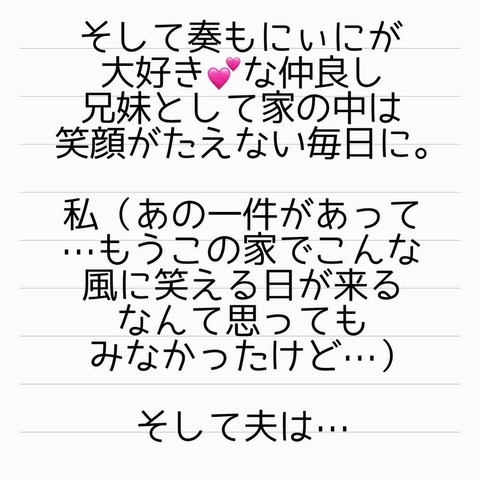 そして奏もにぃにが
大好き💕な仲良し
兄妹として家の中は
笑顔がたえない毎日に。
私（あの一件があって
…もうこの家でこんな
風に笑える日が来る
なんて思っても
みなかったけど…）
そして夫は…